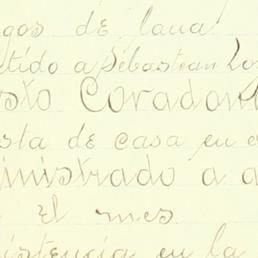 gos de lana
tido a Sebastean Lo
sto Corador
sta de casa en e
ministrado a a
El mes
istencia en la